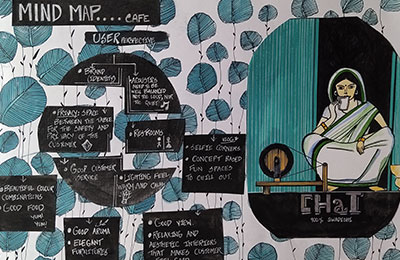 MIND MAP.... CAFE
USER PERSPECTIVE
• BRAND IDENTITY
• ACOUSTICS
NEED TO BE
WELL BALANCED
NOT TOO LOUD, NOR
TOO QUIET
• PRIVACY: SPACE
BETWEEN THE TABLE
FOR THE SAFETY AND
PRIVACY OF THE
CUSTOMER
• RESTROOMS
• SELFIE CORNERS
• CONCEPT BASED
FUN SPACES
TO CHILL OUT.
• GOOD CUSTOMER
SERVICE
• LIGHTING FEEL
WARM AND CALM
• BEAUTIFUL COLOUR
COMBINATIONS
• GOOD FOOD
YUM!
YUM!
• GOOD AROMA
• ELEGANT
FURNITURES
• GOOD VIEW.
• RELAXING AND
AESTHETIC INTERIORS
THAT MAKES CUSTOMER
CHaI
100% SWADESHI